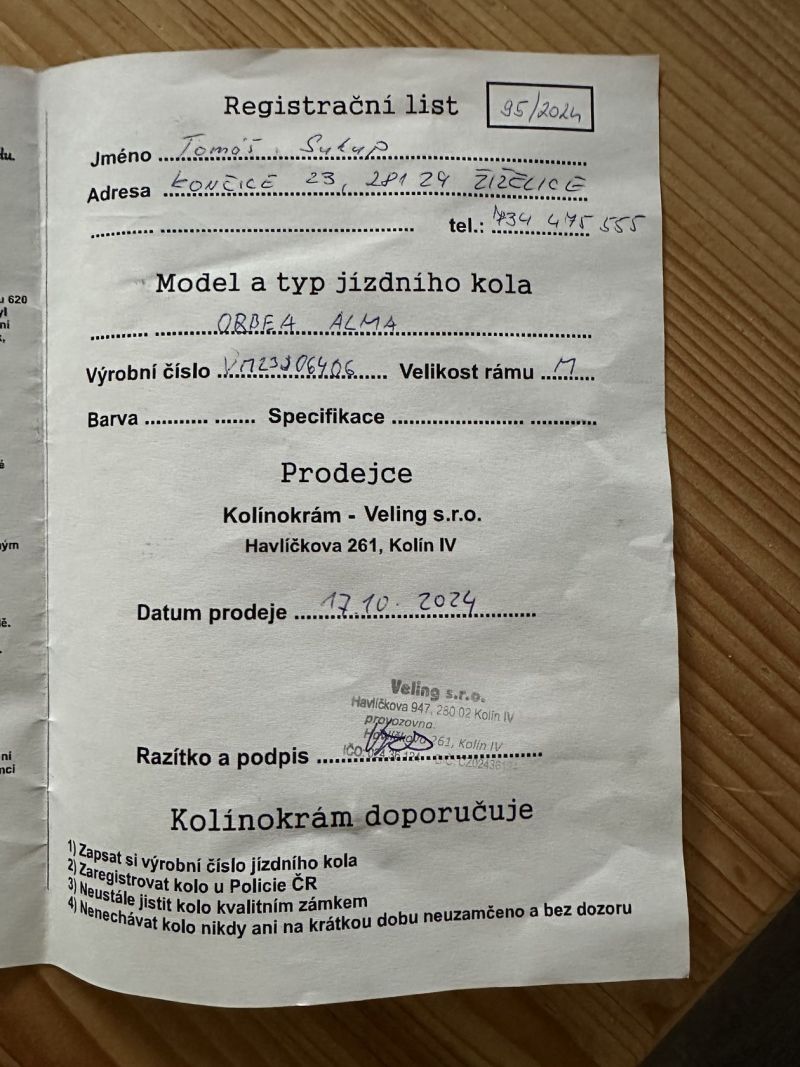 Registrační list 95/2024
Jméno Tomáš Sukup
Adresa KONČICE 23, 281 29 ŽIŽELICE
tel.: 734 475 555
Model a typ jízdního kola
ORBEA ALMA
Výrobní číslo Velikost rámu M
Barva Specifikace
Prodejce
Kolínokrám - Veling s.r.o.
Havlíčkova 261, Kolín IV
Datum prodeje 17.10. 2024
Veling s.r.o.
Havlíčkova 947, 280 02 Kolín IV
provozovna.
Havlíčkova 261, Kolín IV
IČO:
Razítko a podpis
Kolínokrám doporučuje
1) Zapsat si výrobní číslo jízdního kola
2) Zaregistrovat kolo u Policie ČR
3) Neustále jistit kolo kvalitním zámkem
4) Nenechávat kolo nikdy ani na krátkou dobu neuzamčeno a bez dozoru